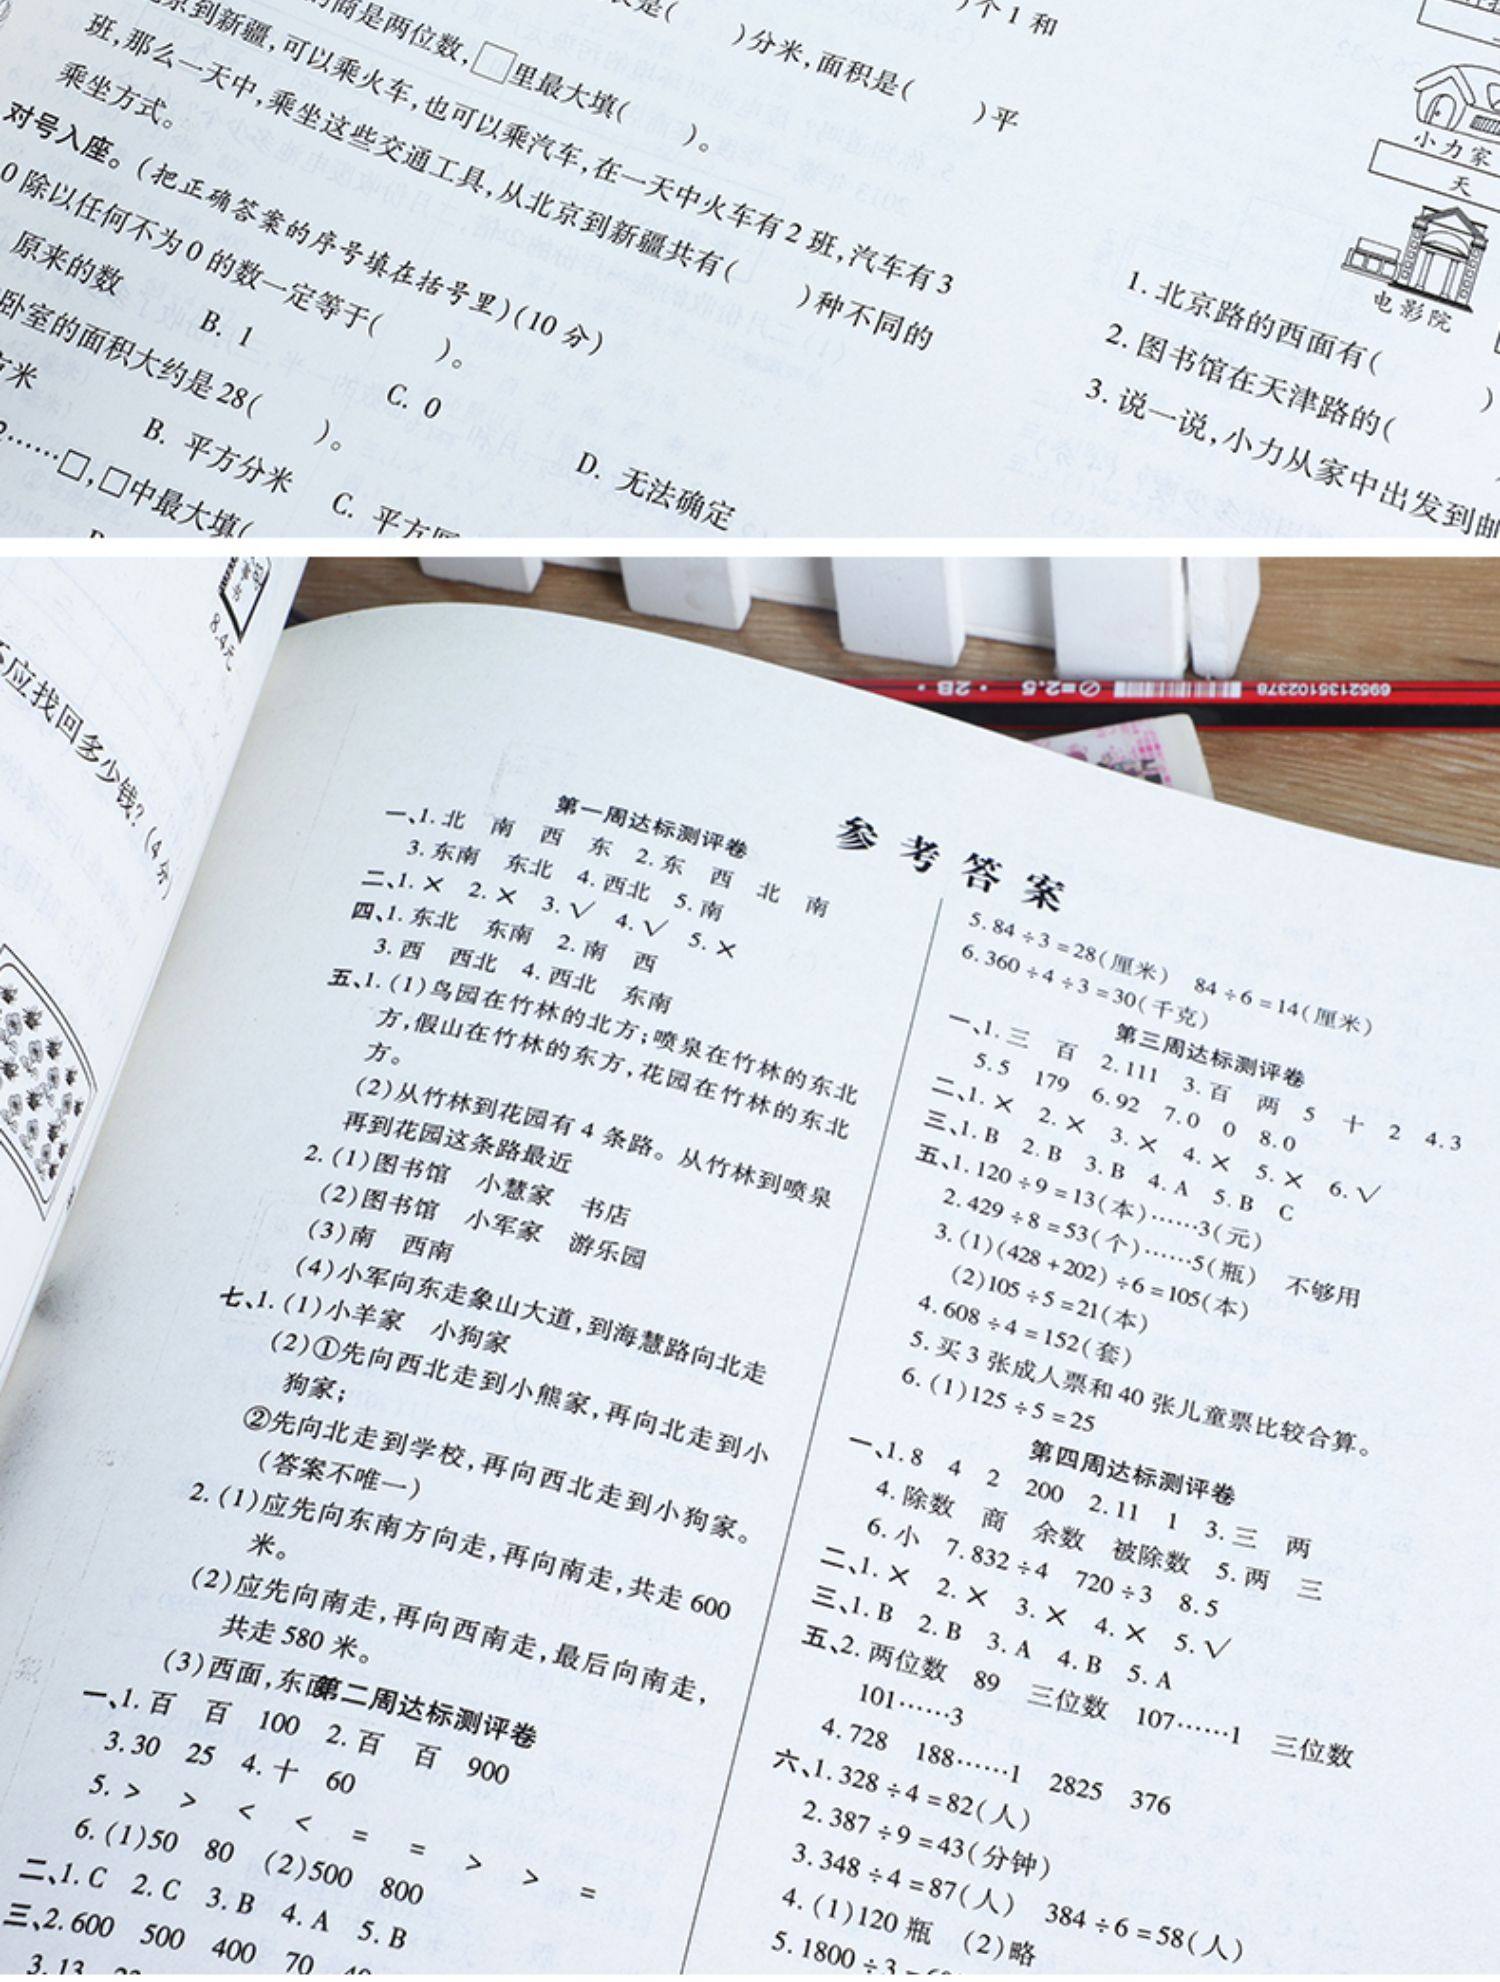 )个1和
)分米,面积是(
)平
的商是两位数,□里最大填(
)。
京到新疆,可以乘火车,也可以乘汽车,在一天中火车有2班,汽车有3
班,那么一天中,乘坐这些交通工具,从北京到新疆共有(
)种不同的
乘坐方式。
对号入座。(把正确答案的序号填在括号里)(10分)
0除以任何不为0的数一定等于(
)。
原来的数
B. 1
C. 0
D. 无法确定
卧室的面积大约是28(
)。
方米
B. 平方分米
C. 平方
……□,□中最大填(
小力家
天
电影院
1. 北京路的西面有(
)
2. 图书馆在天津路的(
3. 说一说,小力从家中出发到邮
8.4元
应找回多少钱?(4分)
6952135102378
⊘=2.5
· 2B ·
参考答案
第一周达标测评卷
一、1.北 南 西 东 2.东 西 北 南
3.东南 东北 4.西北 5.南
二、1.× 2.× 3.√ 4.√ 5.×
四、1.东北 东南 2.南 西
3.西 西北 4.西北 东南
五、1.(1)鸟园在竹林的北方;喷泉在竹林的东北
方,假山在竹林的东方,花园在竹林的东北
方。
(2)从竹林到花园有4条路。从竹林到喷泉
再到花园这条路最近
2.(1)图书馆 小慧家 书店
(2)图书馆 小军家 游乐园
(3)南 西南
(4)小军向东走象山大道,到海慧路向北走
七、1.(1)小羊家 小狗家
(2)①先向西北走到小熊家,再向北走到小
狗家;
②先向北走到学校,再向西北走到小狗家。
(答案不唯一)
2.(1)应先向东南方向走,再向南走,共走600
米。
(2)应先向南走,再向西南走,最后向南走,
共走580米。
(3)西面,东面
第二周达标测评卷
一、1.百 百 100 2.百 百 900
3.30 25 4.十 60
5.> > < < = = > > =
6.(1)50 80 (2)500 800
二、1.C 2.C 3.B 4.A 5.B
三、2.600 500 400 70
3.13
5.84÷3=28(厘米) 84÷6=14(厘米)
6.360÷4÷3=30(千克)
第三周达标测评卷
一、1.三 百 2.111 3.百 两 5 十 2 4.3
5.5 179 6.92 7.0 0 8.0
二、1.× 2.× 3.× 4.× 5.× 6.√
三、1.B 2.B 3.B 4.A 5.B C
五、1.120÷9=13(本)……3(元)
2.429÷8=53(个)……5(瓶) 不够用
3.(1)(428+202)÷6=105(本)
(2)105÷5=21(本)
4.608÷4=152(套)
5.买3张成人票和40张儿童票比较合算。
6.(1)125÷5=25
第四周达标测评卷
一、1.8 4 2 200 2.11 1 3.三 两
4.除数 商 余数 被除数 5.两 三
6.小 7.832÷4 720÷3 8.5
二、1.× 2.× 3.× 4.× 5.√
三、1.B 2.B 3.A 4.B 5.A
五、2.两位数 89 三位数 107……1 三位数
101……3
4.728 188……1 2825 376
六、1.328÷4=82(人)
2.387÷9=43(分钟)
3.348÷4=87(人) 384÷6=58(人)
4.(1)120瓶 (2)略
5.1800÷3